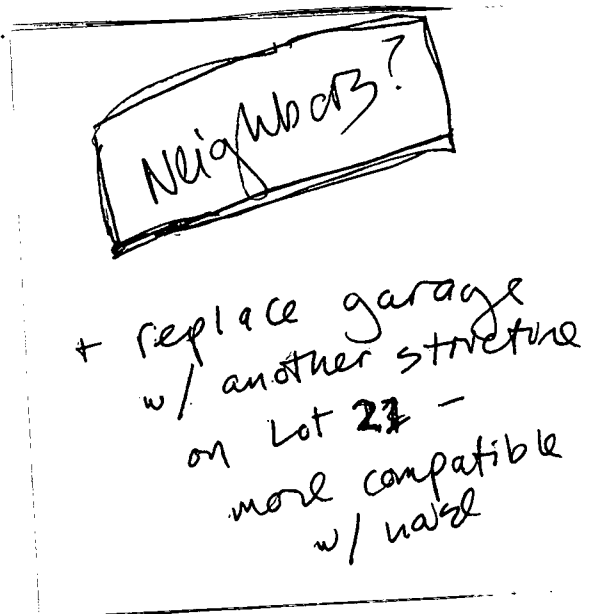 Neighbors?
+ replace garage
w/ another structure
on Lot 21 -
more compatible
w/ noise